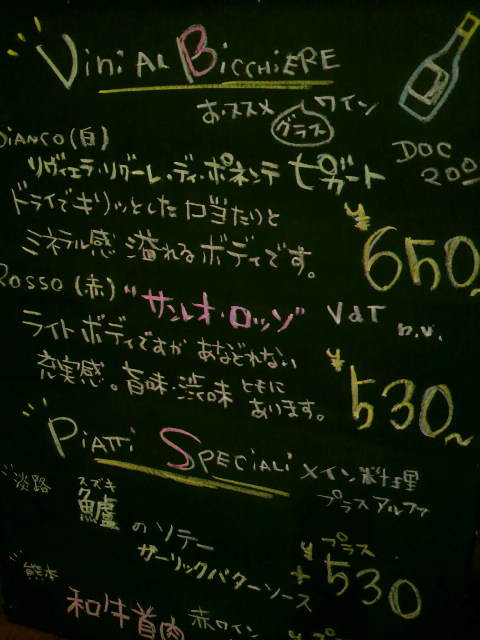 Vini Al Bicchiere
おススメ グラスワイン
Bianco (白)
リヴィエラ・リグーレ・ディ・ポネンテ ピガート DOC 200
ドライでキリッとした口当たりと
ミネラル感溢れるボディです。
¥650~
Rosso (赤) "サンレオ・ロッソ" VdT n.v.
ライトボディですが あなどれない
充実感。旨味・渋味ともに
あります。
¥530~
Piatti Speciali メイン料理
プラスアルファ
淡路 鱸 スズキ のソテー
ガーリックバターソース
プラス
¥+530
熊本
和牛首肉 赤ワイン